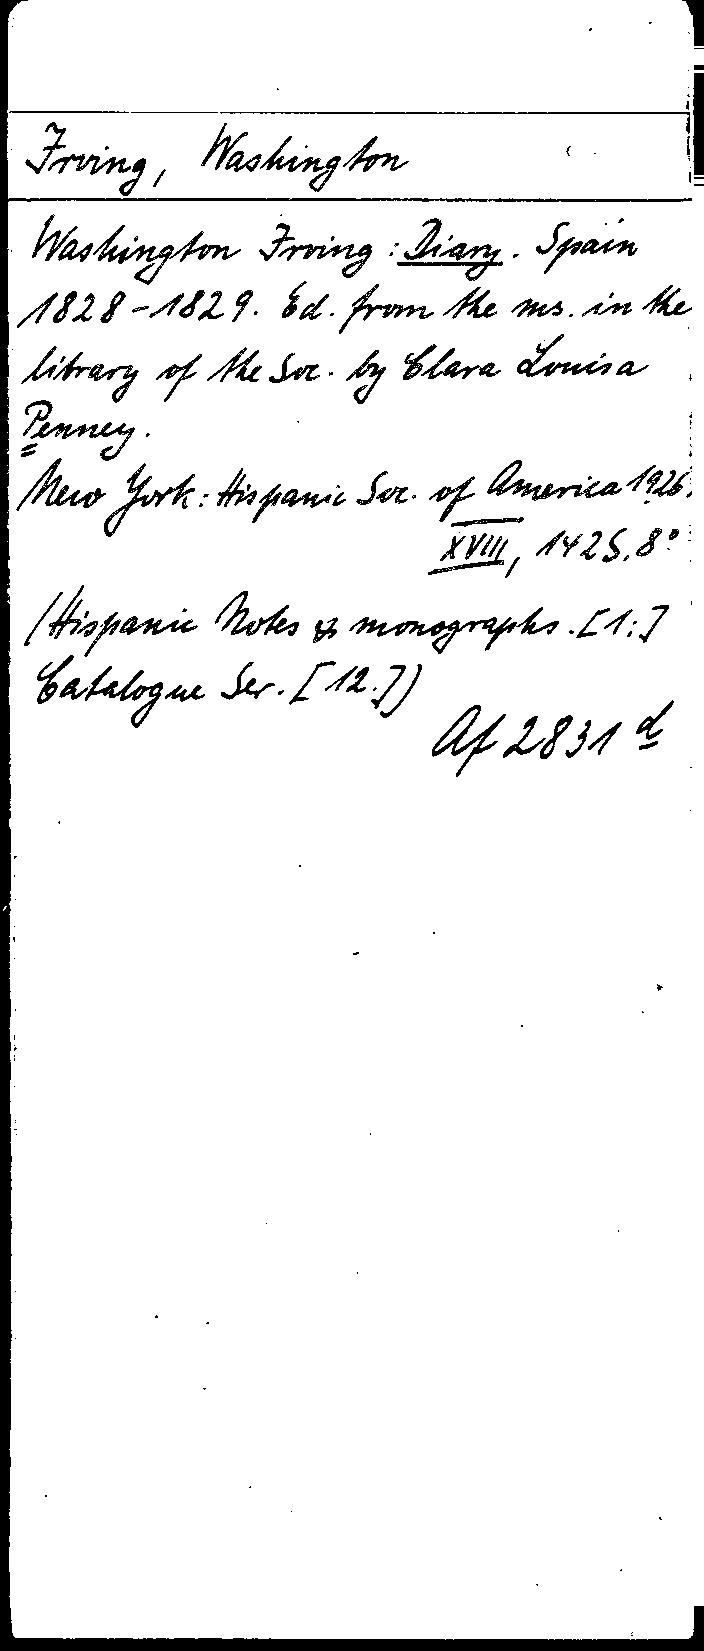 Irving, Washington
Washington Irving: Diary. Spain
1828-1829. Ed. from the ms. in the
library of the Soc. by Clara Louisa
Penney.
New York: Hispanic Soc. of America 1926.
XVIII, 142 S. 8°
(Hispanic Notes & monographs. [1:]
Catalogue Ser. [12.])
Af 2831 d